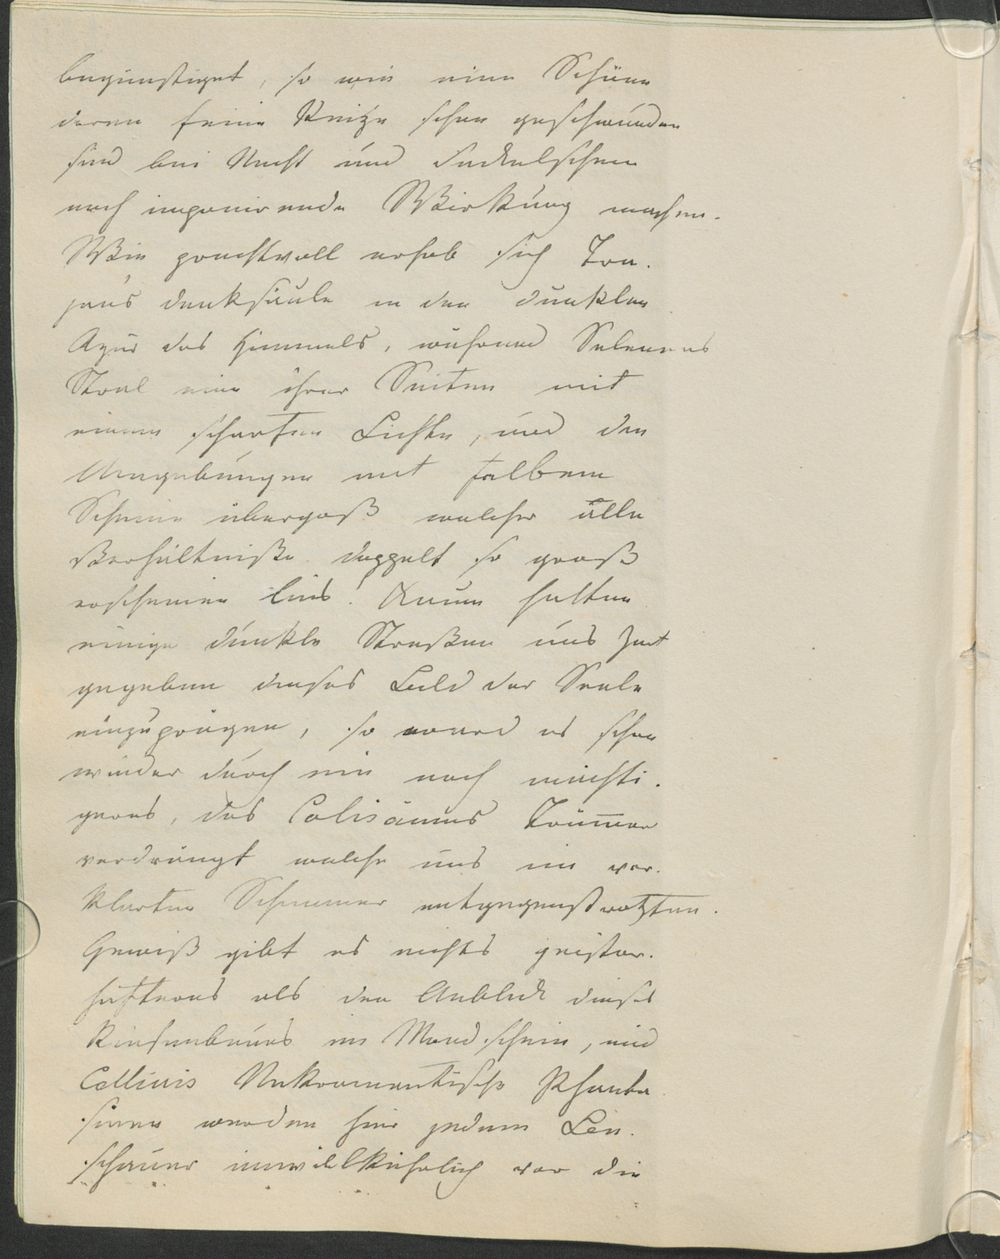 begünstiget, so wie eine Schöne
deren feine Reitze schon geschwunden
sind bei Nacht und Fackelschein
noch imponirende Wirkung machen.
Wie prachtvoll erhob sich Tra-
jans Denksäule in den dunklen
Azur des Himmels, während Selenens
Stral eine ihrer Seiten mit
einem scharfen Lichte, und die
Umgebungen mit falbem
Scheine übergoß welcher alle
Verhältniße doppelt so groß
erscheinen ließ. Kaum hatten
einige dunkle Straßen uns Zeit
gegeben dieses Bild der Seele
einzuprägen, so ward es schon
wieder durch ein noch mächti-
geres, des Colisäums Trümmer
verdrängt welche uns im ver-
klärten Schimmer entgegenstratzten.
Gewiß gibt es nichts geister-
hafteres als den Anblick dieses
Riesenbaues im Mondschein, und
Cellinis Nekromantische Phanta-
sieen werden hier jedem Be-
schauer unwillkührlich vor die